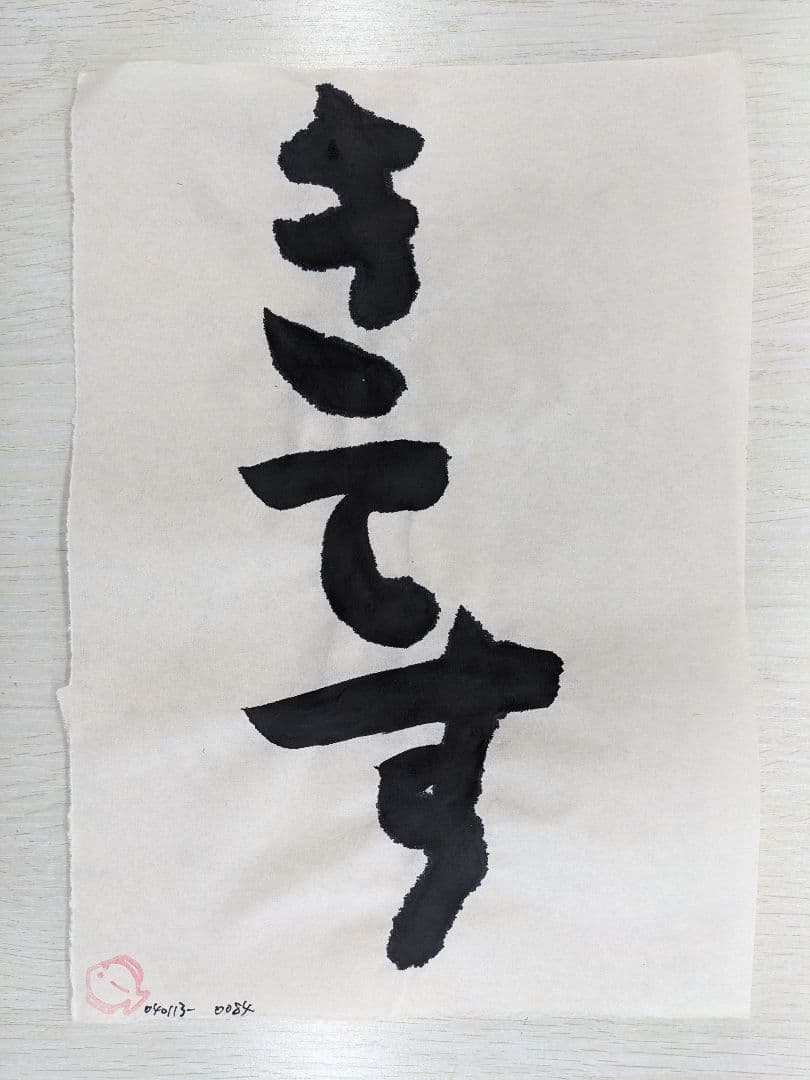 きてす
040113- 0084